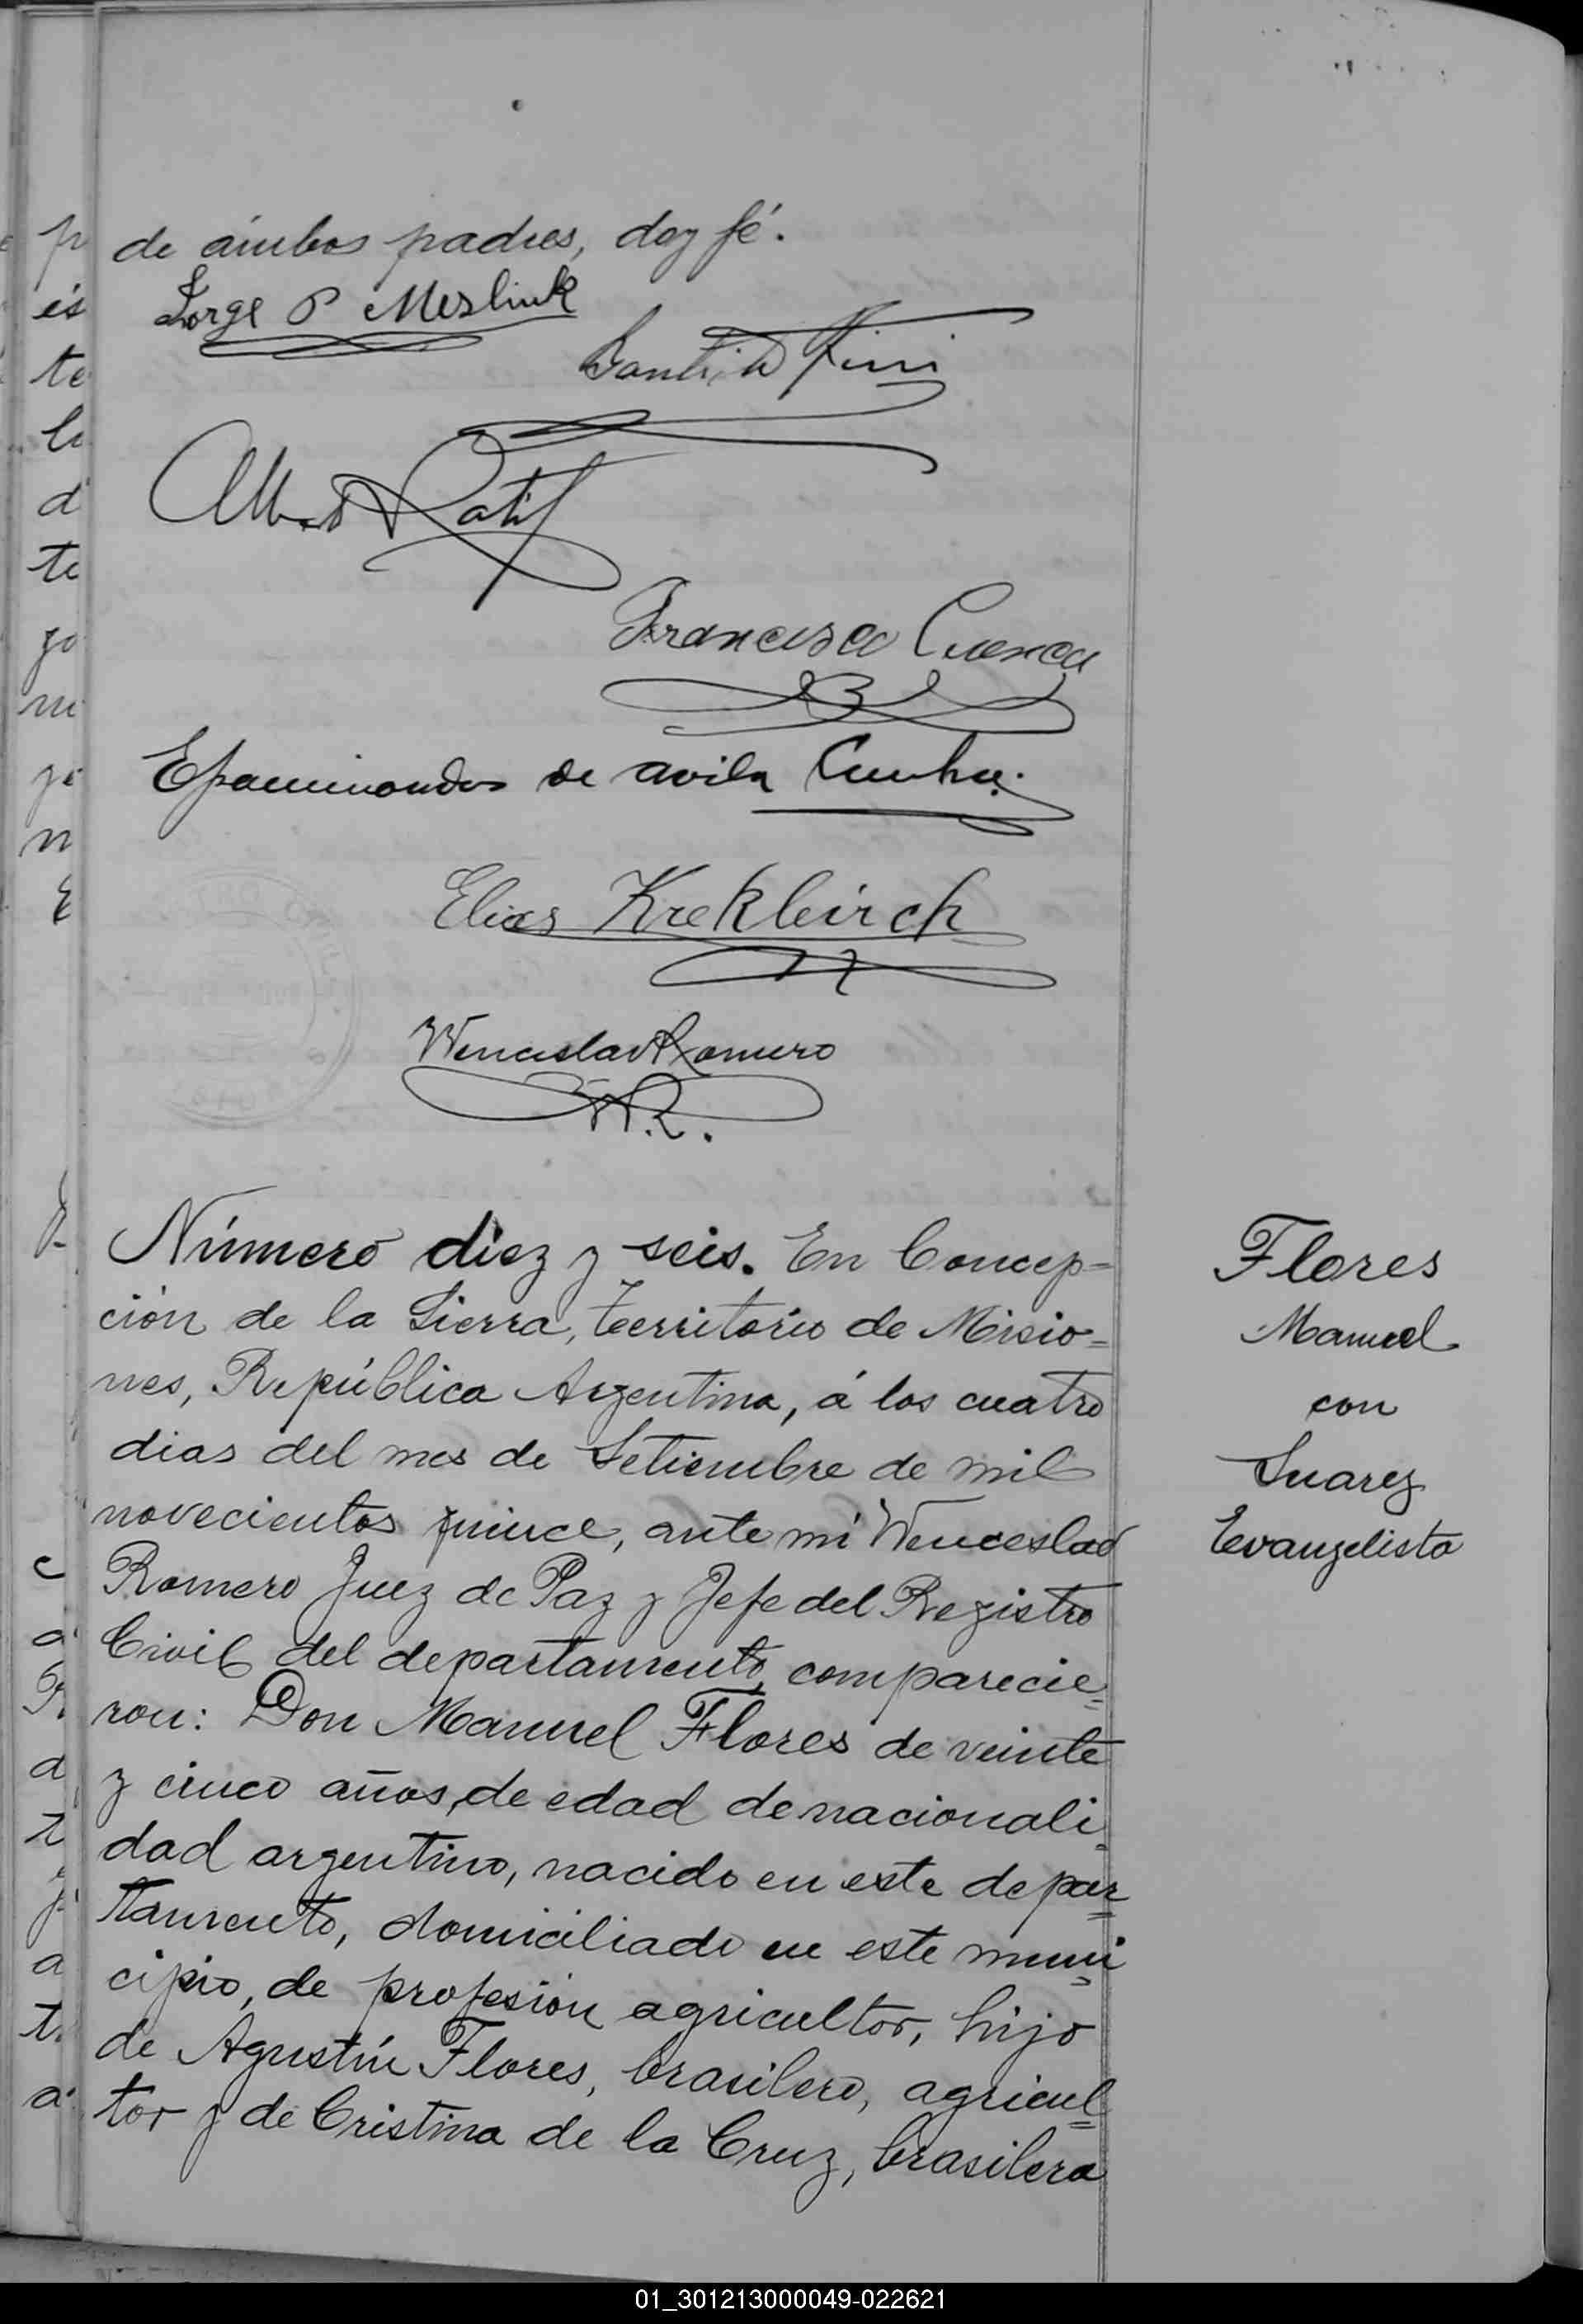 de ámbos padres, doy fé.
Jorge P Meslink
Alberto
Francisco Cuenca
Epaminondas de avila Cunha.
Elias Krekleirch
Wenceslao Romero
W.R.
Número diez y seis. En Concep=
ción de la Sierra, territorio de Misio=
nes, República Argentina, á los cuatro
dias del mes de Setiembre de mil
novecientos quince, ante mí Wenceslao
Romero Juez de Paz y Jefe del Registro
Civil del departamento, comparecie=
ron: Don Manuel Flores de veinte
y cinco años, de edad de nacionali=
dad argentino, nacido en este depar=
tamento, domiciliado en este muni=
cipio, de profesión agricultor, hijo
de Agustín Flores, brasilero, agricul=
tor y de Cristina de la Cruz, brasilera
Flores
Manuel
con
Suarez
Evangelista
01_301213000049-022621